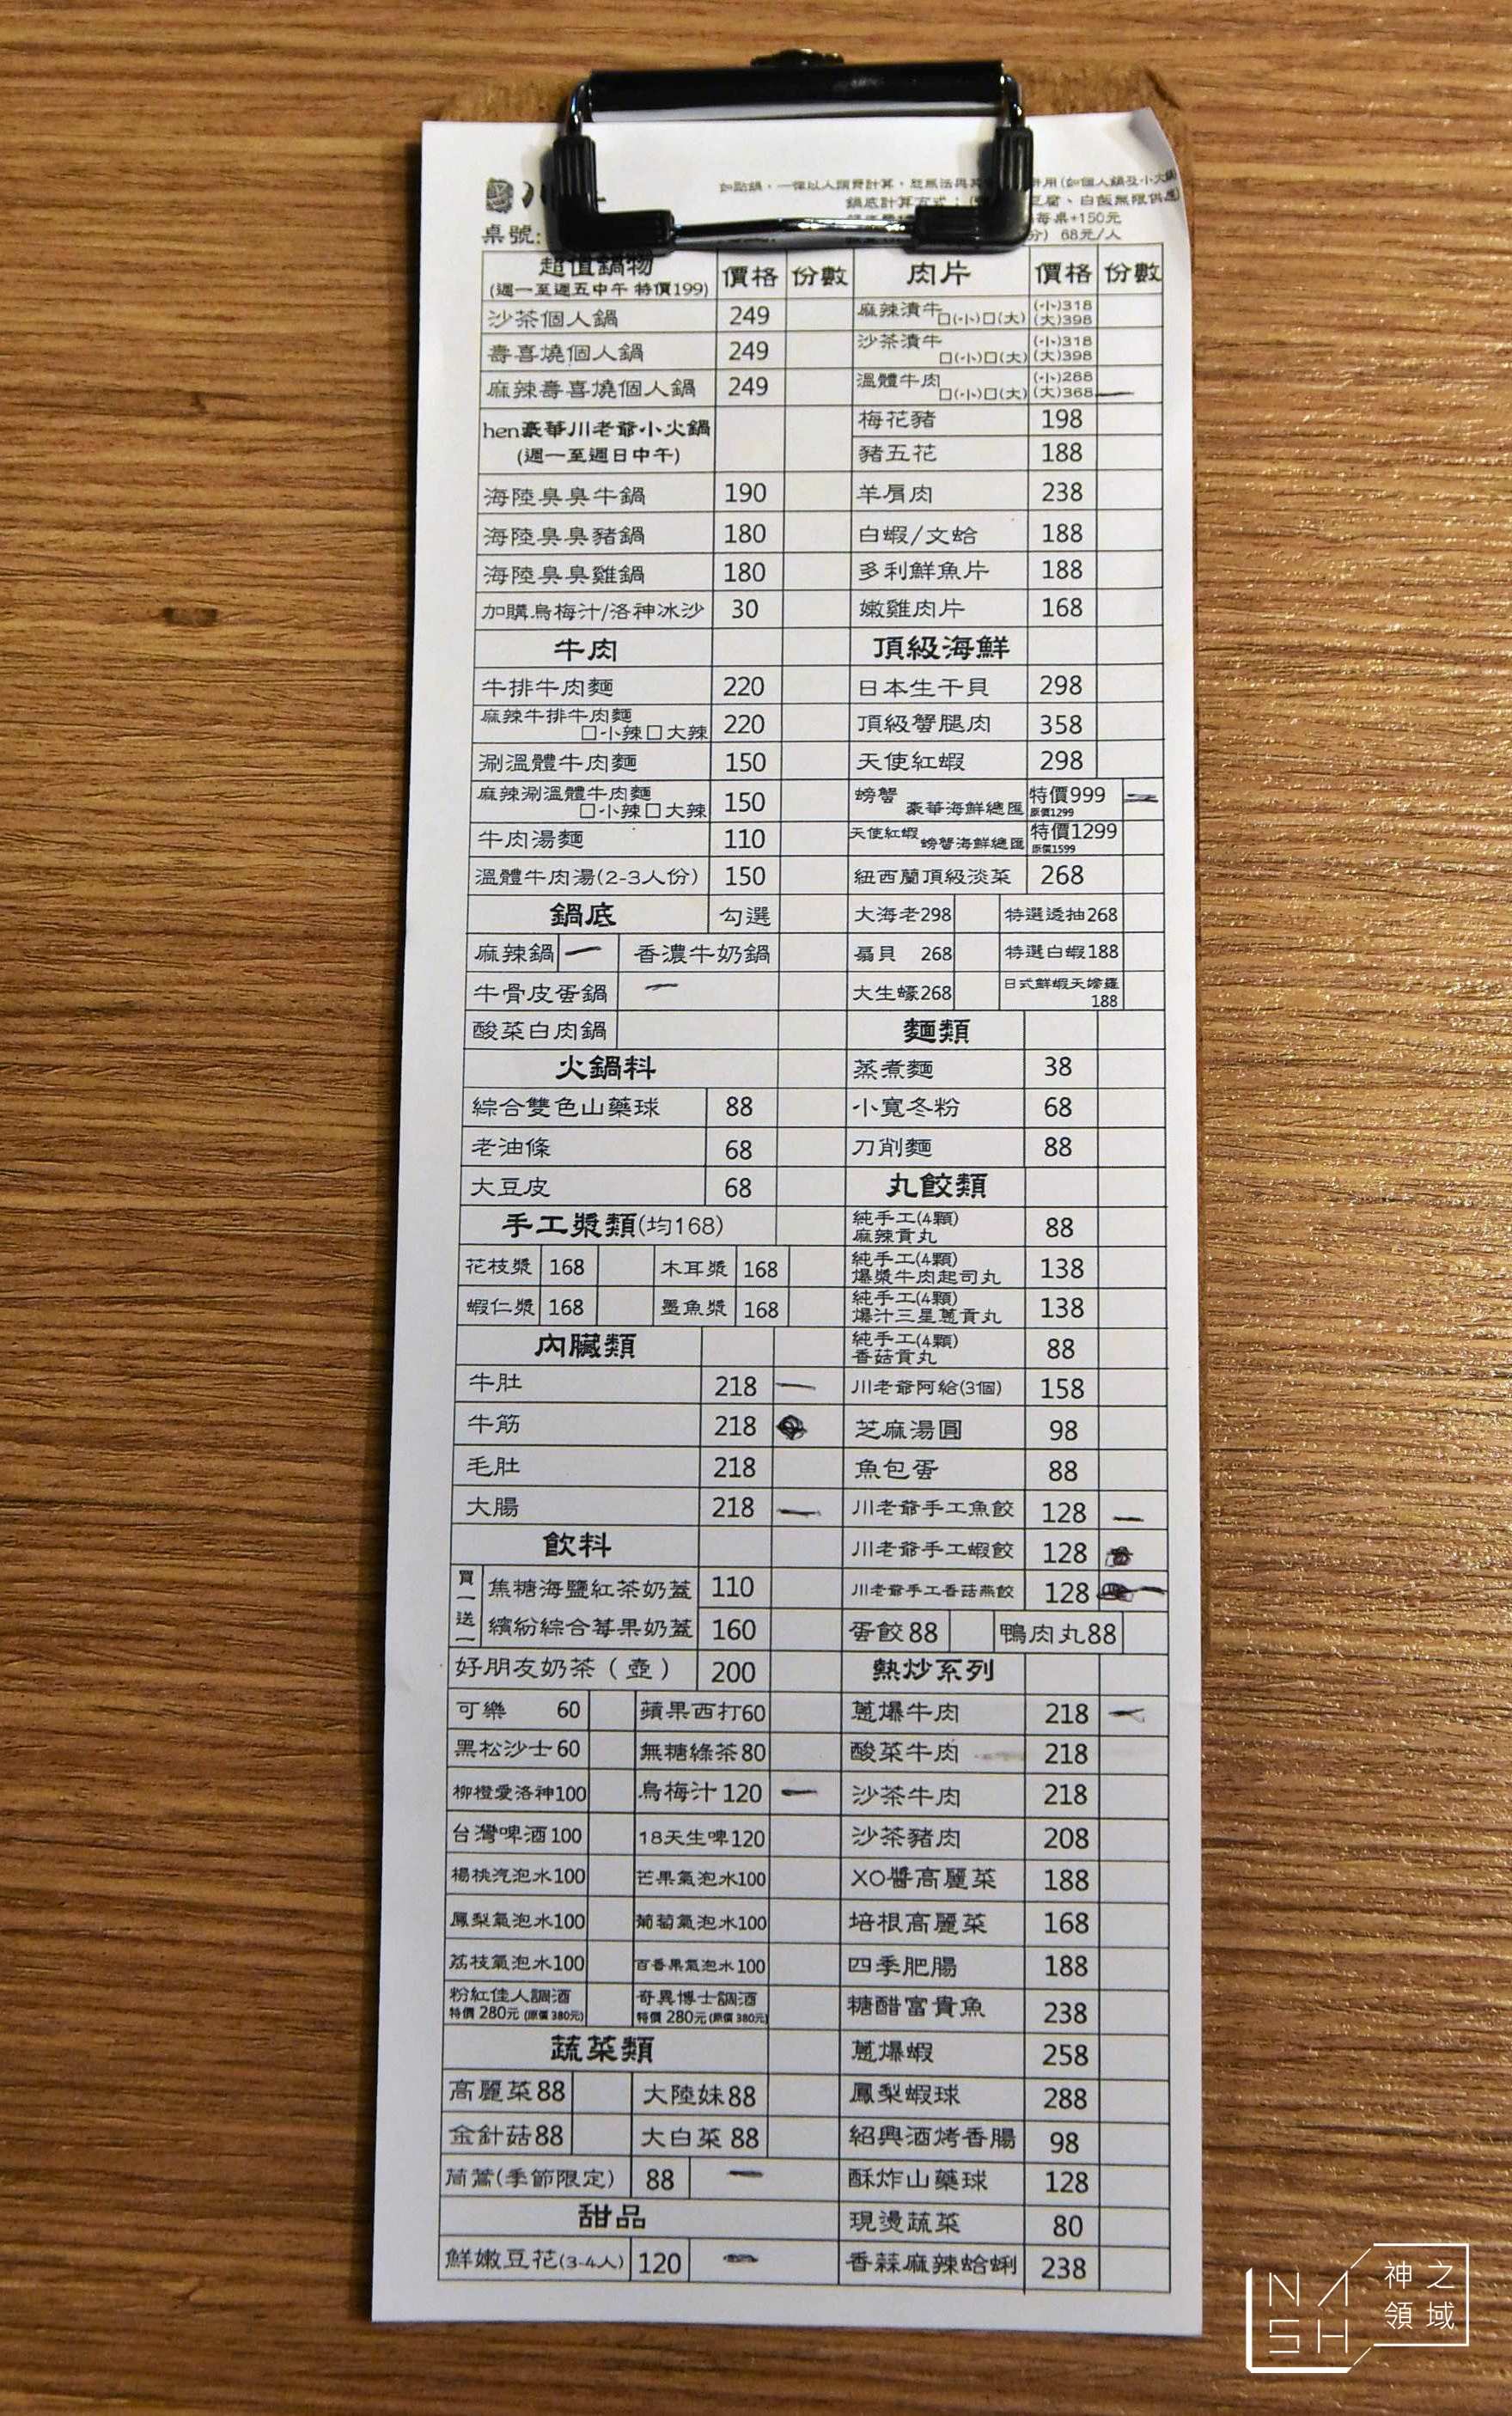 如點鍋，一律以人頭費計算，恕無法與其
併用(如個人鍋及小火鍋
鍋底計算方式：
豆腐、白飯無限供應)
每桌+150元
桌號:
分) 68元/人
超值鍋物 價格 份數
(週一至週五中午 特價199)
沙茶個人鍋 249
壽喜燒個人鍋 249
麻辣壽喜燒個人鍋 249
hen豪華川老爺小火鍋
(週一至週日中午)
海陸臭臭牛鍋 190
海陸臭臭豬鍋 180
海陸臭臭雞鍋 180
加購烏梅汁/洛神冰沙 30
牛肉
牛排牛肉麵 220
麻辣牛排牛肉麵 220
□小辣□大辣
涮溫體牛肉麵 150
麻辣涮溫體牛肉麵 150
□小辣□大辣
牛肉湯麵 110
溫體牛肉湯(2-3人份) 150
鍋底 勾選
麻辣鍋 一 香濃牛奶鍋
牛骨皮蛋鍋 一
酸菜白肉鍋
火鍋料
綜合雙色山藥球 88
老油條 68
大豆皮 68
手工漿類(均168)
花枝漿 168 木耳漿 168
蝦仁漿 168 墨魚漿 168
內臟類
牛肚 218 一
牛筋 218
毛肚 218
大腸 218 一
飲料
買一送一
焦糖海鹽紅茶奶蓋 110
繽紛綜合莓果奶蓋 160
好朋友奶茶(壺) 200
可樂 60 蘋果西打60
黑松沙士60 無糖綠茶80
柳橙愛洛神100 烏梅汁120 一
台灣啤酒100 18天生啤120
楊桃汽泡水100 芒果氣泡水100
鳳梨氣泡水100 葡萄氣泡水100
荔枝氣泡水100 百香果氣泡水100
粉紅佳人調酒 奇異博士調酒
特價 280元 (原價 380元) 特價 280元 (原價 380元)
蔬菜類
高麗菜88 大陸妹88
金針菇88 大白菜 88
茼蒿(季節限定) 88 一
甜品
鮮嫩豆花(3-4人) 120 一
肉片 價格 份數
麻辣漬牛 (小)318
□(小)□(大) (大)398
沙茶漬牛 (小)318
□(小)□(大) (大)398
溫體牛肉 (小)268
□(小)□(大) (大)368 一
梅花豬 198
豬五花 188
羊肩肉 238
白蝦/文蛤 188
多利鮮魚片 188
嫩雞肉片 168
頂級海鮮
日本生干貝 298
頂級蟹腿肉 358
天使紅蝦 298
螃蟹 特價999
豪華海鮮總匯 原價1299
天使紅蝦 特價1299
螃蟹海鮮總匯 原價1599
紐西蘭頂級淡菜 268
大海老298 特選透抽268
扇貝 268 特選白蝦188
大生蠔268 日式鮮蝦天婦羅
188
麵類
蒸煮麵 38
小寬冬粉 68
刀削麵 88
丸餃類
純手工(4顆) 88
麻辣貢丸
純手工(4顆) 138
爆漿牛肉起司丸
純手工(4顆) 138
爆汁三星蔥貢丸
純手工(4顆) 88
香菇貢丸
川老爺阿給(3個) 158
芝麻湯圓 98
魚包蛋 88
川老爺手工魚餃 128 一
川老爺手工蝦餃 128
川老爺手工香菇燕餃 128
蛋餃88 鴨肉丸88
熱炒系列
蔥爆牛肉 218 一
酸菜牛肉 218
沙茶牛肉 218
沙茶豬肉 208
XO醬高麗菜 188
培根高麗菜 168
四季肥腸 188
糖醋富貴魚 238
蔥爆蝦 258
鳳梨蝦球 288
紹興酒烤香腸 98
酥炸山藥球 128
現燙蔬菜 80
香蒜麻辣蛤蜊 238
NASH
神之
領域